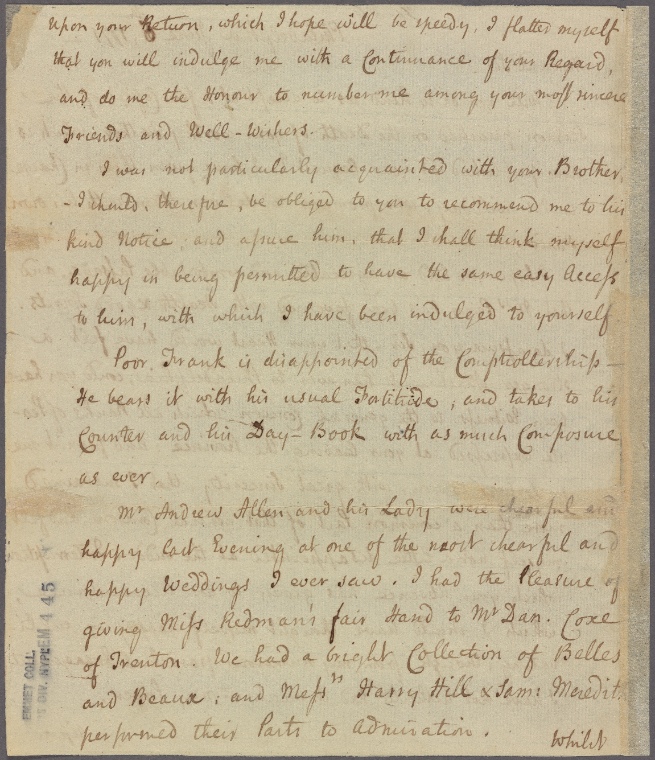 upon your Return, which I hope will be speedy, I flatter myself
that you will indulge me with a Continuance of your Regard,
and do me the Honour to number me among your most sincere
Friends and Well-Wishers.
I was not particularly acquainted with your Brother,
- I should, therefore, be obliged to you to recommend me to his
kind Notice and assure him, that I shall think myself
happy in being permitted to have the same easy Access
to him, with which I have been indulged to yourself
Poor Frank is disappointed of the Comptrollership -
He bears it with his usual Fortitude, and takes to his
Counter and his Day-Book with as much Composure
as ever
Mr Andrew Allen and his Lady were chearful and
happy last Evening at one of the most chearful and
happy Weddings I ever saw. I had the Pleasure of
giving Miss Redman's fair Hand to Mr Dan. Coxe
of Trenton. We had a bright Collection of Belles
and Beaux; and Messrs Harry Hill & Saml Meredith
performed their Parts to Admiration.
Whilst
EMMET COLL.
DIV. NYPL
EM 145